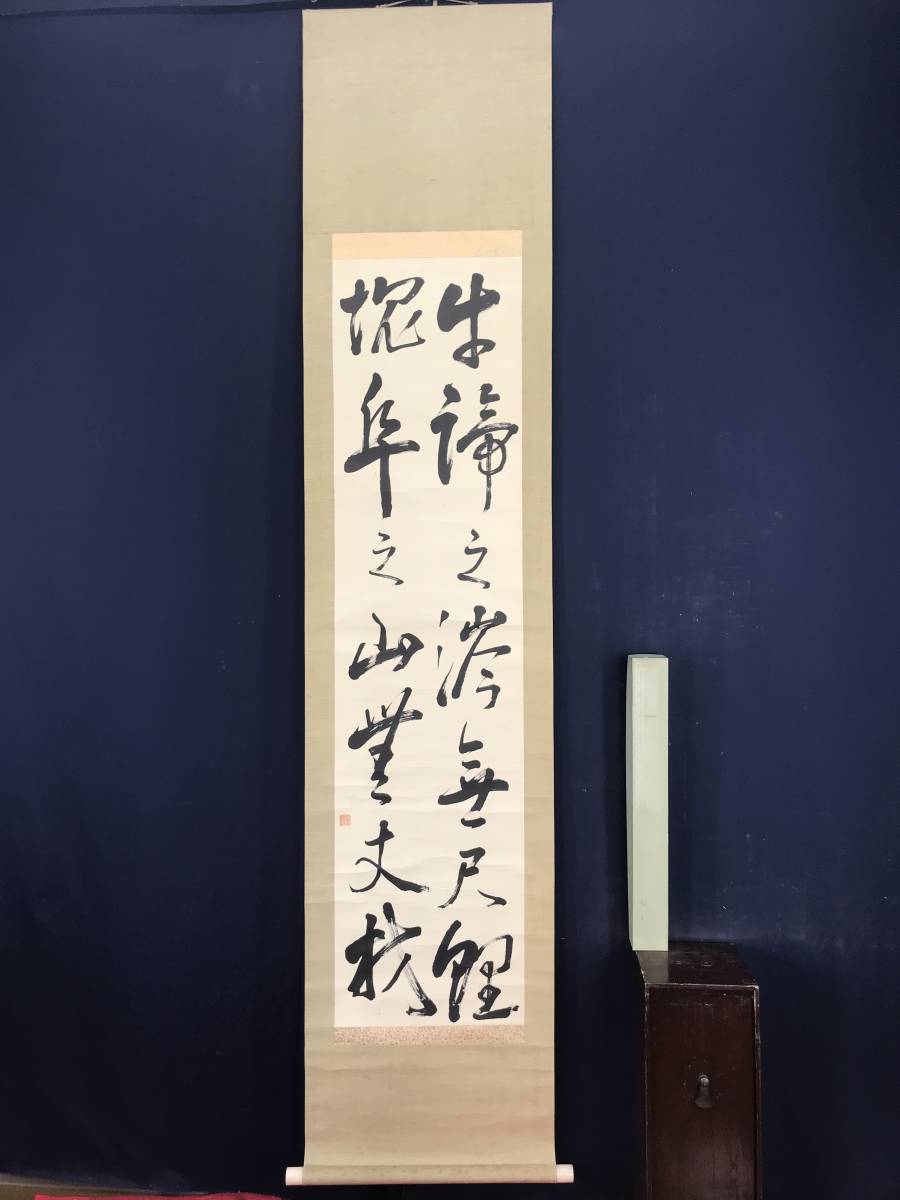 牛蹄之涔無尺鯉
塊阜之山無丈材